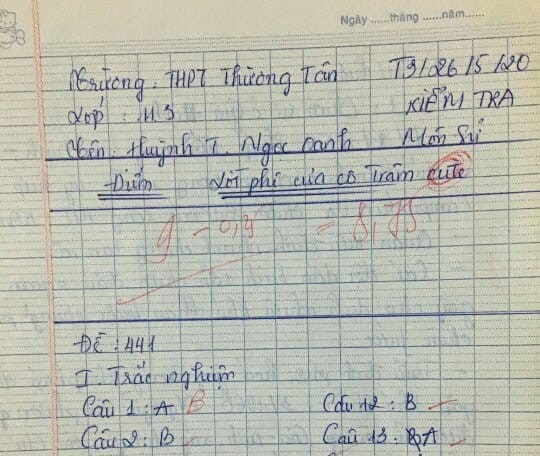 Ngày ......tháng ......năm......
Trường : THPT Thường Tân T3/26/5/20
Lớp : 11/3 KIỂM TRA
Tên : Huỳnh T. Ngọc Oanh Môn Sử
Điểm Lời phê của cô Trâm cute
9 - 0,4 = 8,75
Đề : 441
I. Trắc nghiệm
Câu 1 : A B Câu 12 : B
Câu 2 : B Câu 13 : A